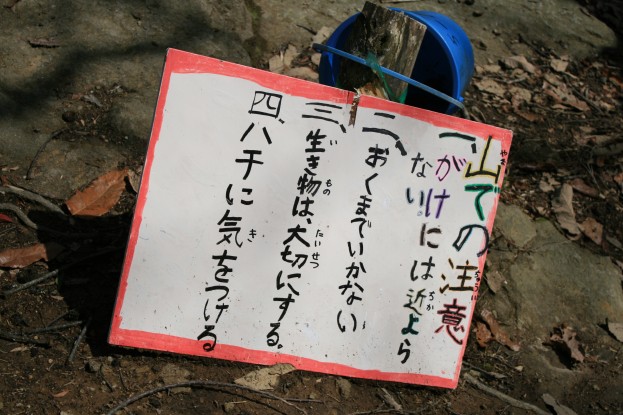 山での注意
一、がけには近よら
ない。
二、おくまでいかない
三、生き物は、大切にする。
四、ハチに気をつける